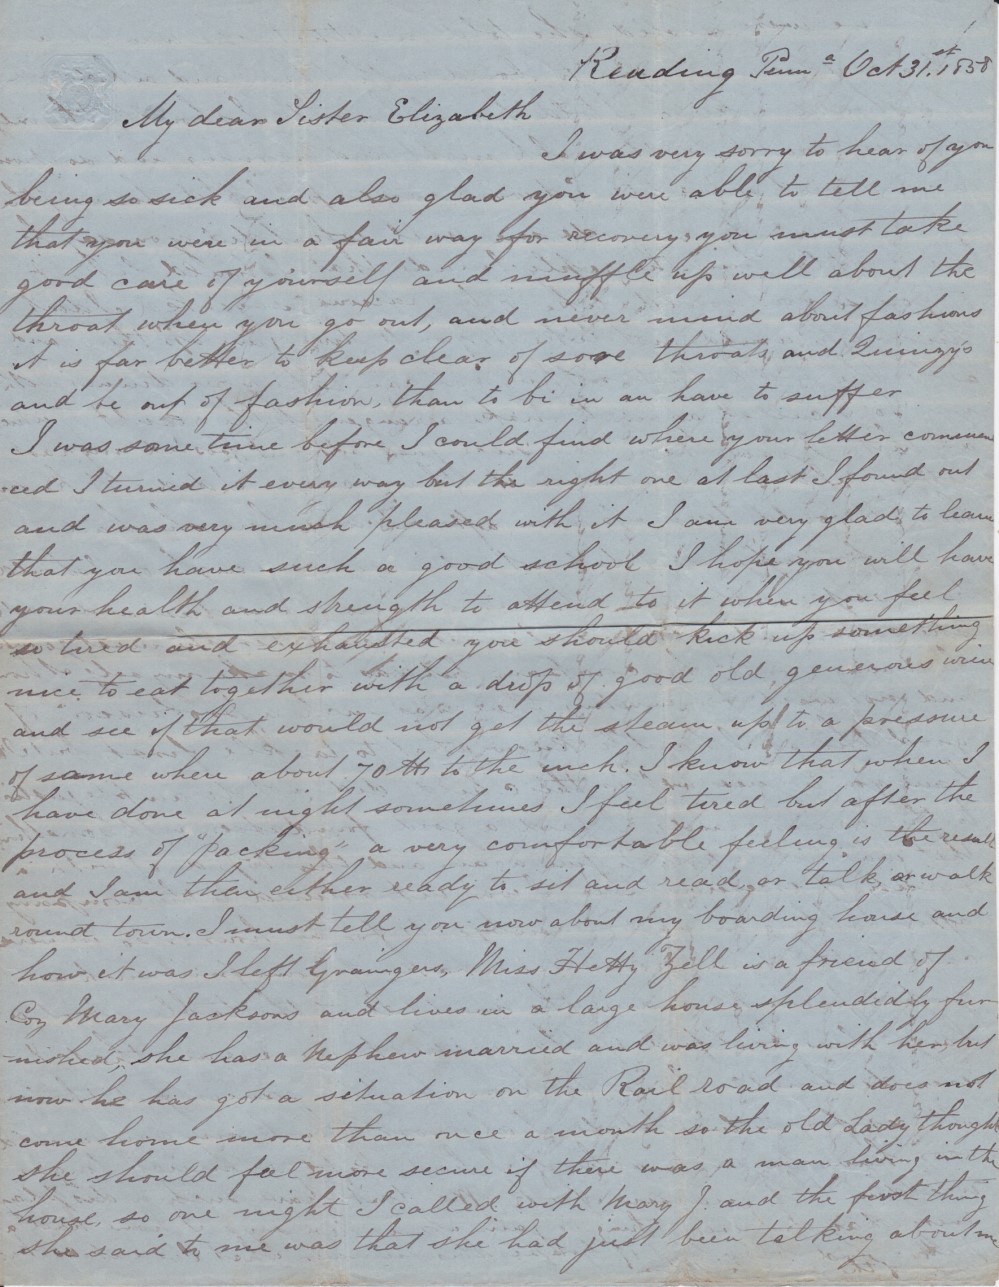 Reading Penn a Oct 31.st 1858
My dear Sister Elizabeth
I was very sorry to hear of you
being so sick and also glad you were able to tell me
that you were in a fair way for recovery you must take
good care of yourself and muffle up well about the
throat when you go out, and never mind about fashions
it is far better to keep clear of sore throats and Quinzy's
and be out of fashion, than to bi in an have to suffer
I was some time before I could find where your letter commen
-ced I turned it every way but the right one at last I found out
and was very much pleased with it I am very glad to learn
that you have such a good school I hope you will have
your health and strength to attend to it when you feel
so tired and exhausted you should kick up something
nice to eat together with a drop of good old generous wine
and see if that would not get the steam up to a pressure
of some where about 70 lbs to the inch. I know that when I
have done at night sometimes I feel tired but after the
process of "packing" a very comfortable feeling is the result
and I am then either ready to sit and read, or talk, or walk
round town. I must tell you now about my boarding house and
how it was I left Graingers, Miss Hetty Zell is a friend of
Coz Mary Jacksons and lives in a large house splendidly fur
-nished, she has a Nephew married and was living with her, but
now he has got a situation on the Rail road and does not
come home more than once a month so the old Lady thought
she should feel more secure if there was a man living in the
house, so one night I called with Mary J. and the first thing
she said to me was that she had just been talking about me